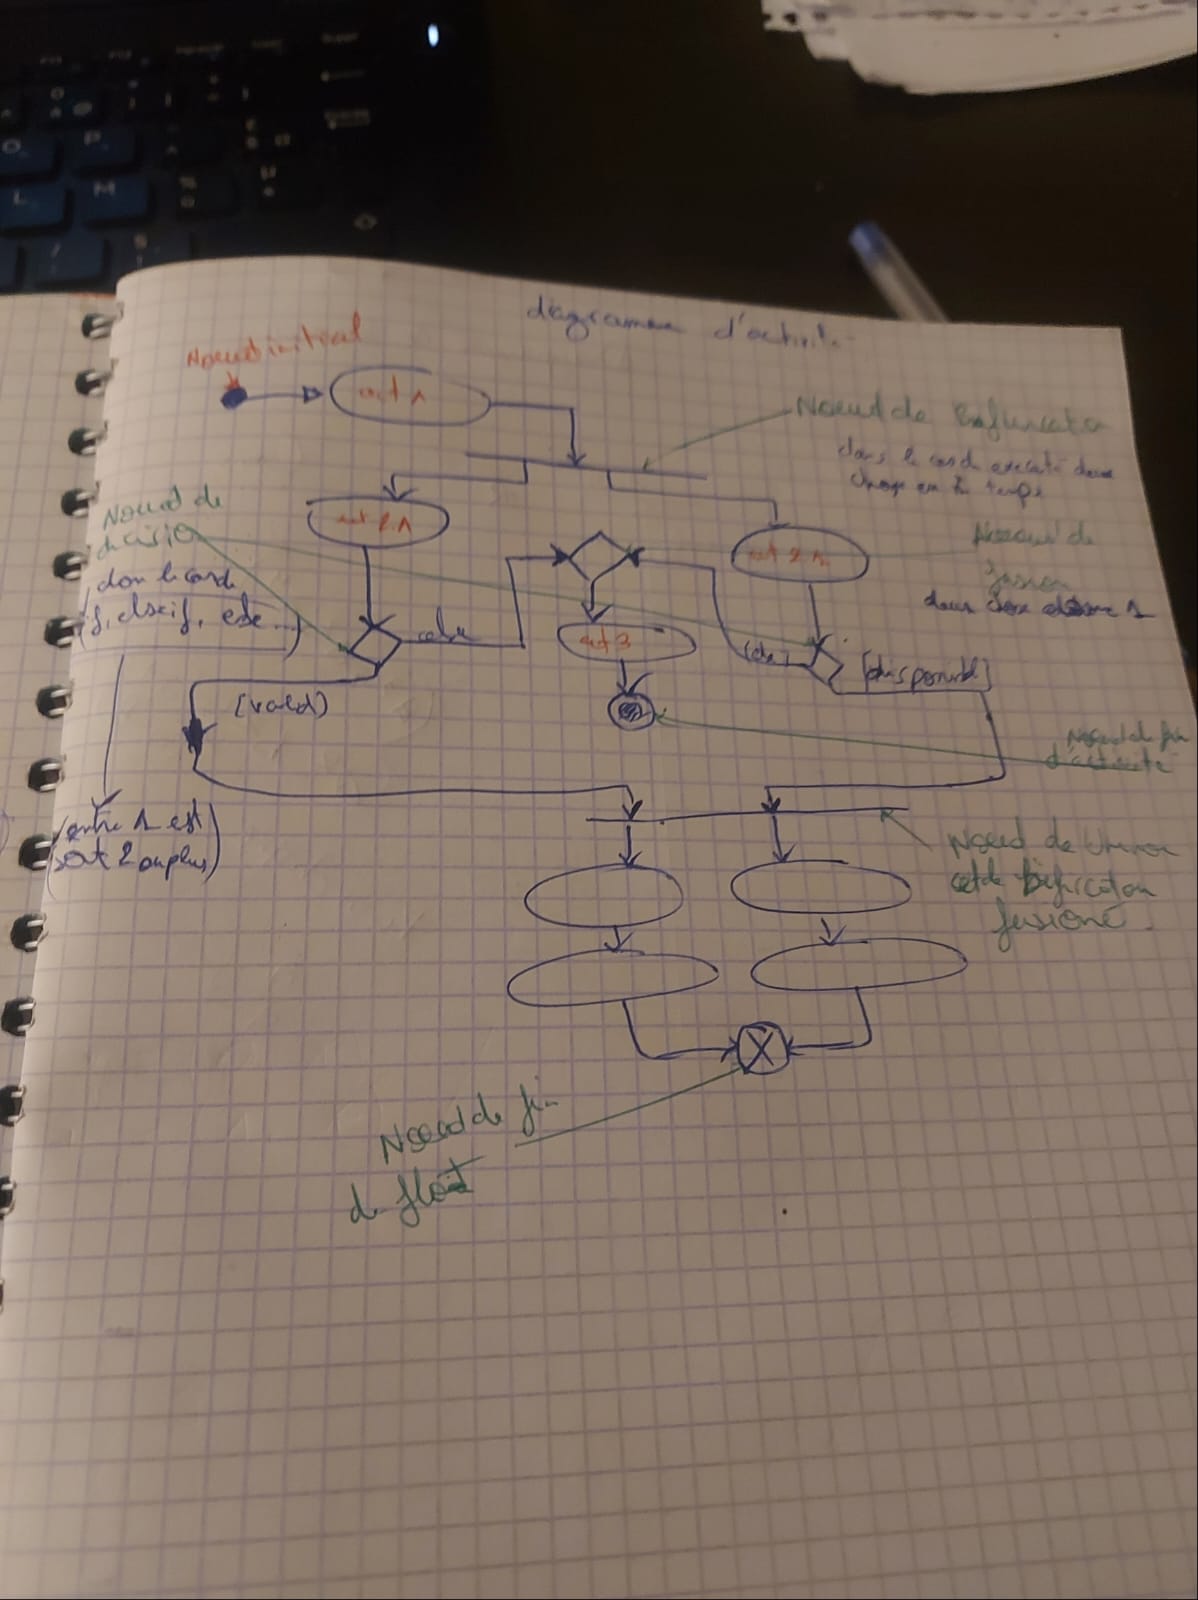 diagramme d'activité
Noeud initial
act 1
Noeud de
dans le cas de executé deux
chose en temps
Noeud de
decision
dans le cas de
(if, elseif, else...)
act 2 1
act 2 2
Noeud de
fusion
deux 1
else
act 3
[else]
[disponible]
[valid]
Noeud de fin
d'activité
(entre 1 est
sort 2 ou plus)
Noeud de Union
et de bifucation
fusioné
Noeud de fin
de flot